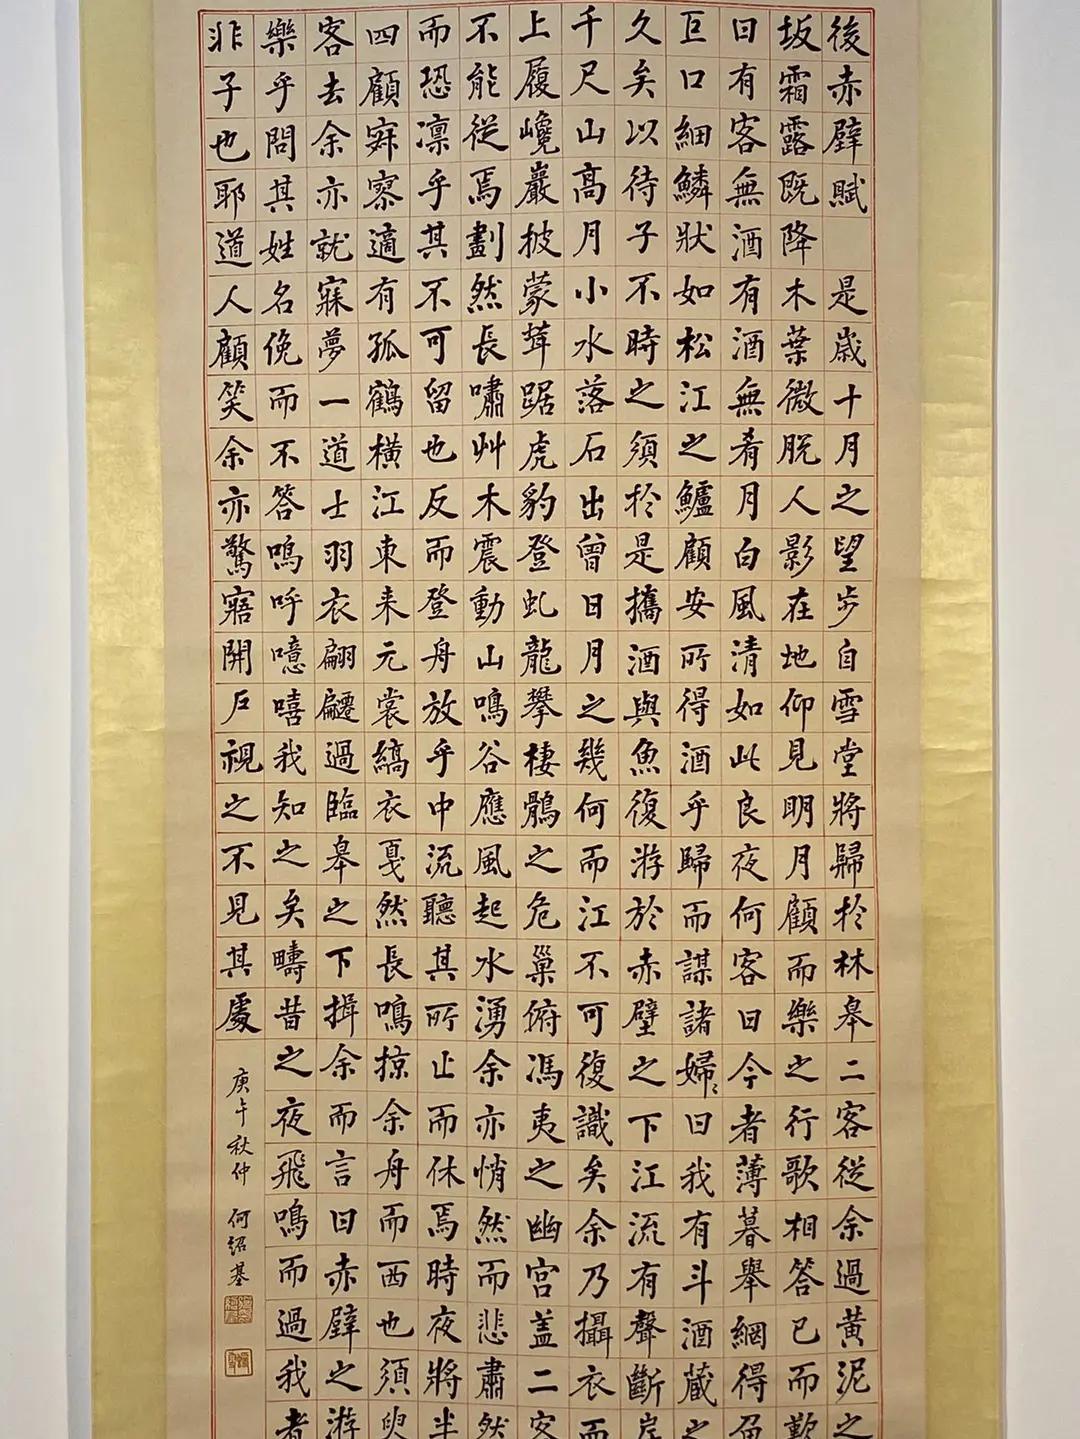 後赤壁賦 是歲十月之望步自雪堂將歸於林皋二客從余過黃泥之
坂霜露既降木葉微脫人影在地仰見明月顧而樂之行歌相答已而歎
曰有客無酒有酒無肴月白風清如此良夜何客曰今者薄暮舉網得魚
巨口細鱗狀如松江之鱸顧安所得酒乎歸而謀諸婦〻曰我有斗酒藏之
久矣以待子不時之須於是攜酒與魚復游於赤壁之下江流有聲斷岸
千尺山高月小水落石出曾日月之幾何而江不可復識矣余乃攝衣而
上履巉巖披蒙茸踞虎豹登虬龍攀棲鶻之危巢俯馮夷之幽宮蓋二客
不能從焉劃然長嘯艸木震動山鳴谷應風起水湧余亦悄然而悲肅然
而恐凛乎其不可留也反而登舟放乎中流聽其所止而休焉時夜將半
四顧寂寥適有孤鶴橫江東来元裳縞衣戛然長鳴掠余舟而西也須臾
客去余亦就寐夢一道士羽衣翩躚過臨皋之下揖余而言曰赤壁之游
樂乎問其姓名俛而不答嗚呼噫嘻我知之矣疇昔之夜飛鳴而過我者
非子也耶道人顧笑余亦驚寤開戶視之不見其處
庚午秋仲 何紹基